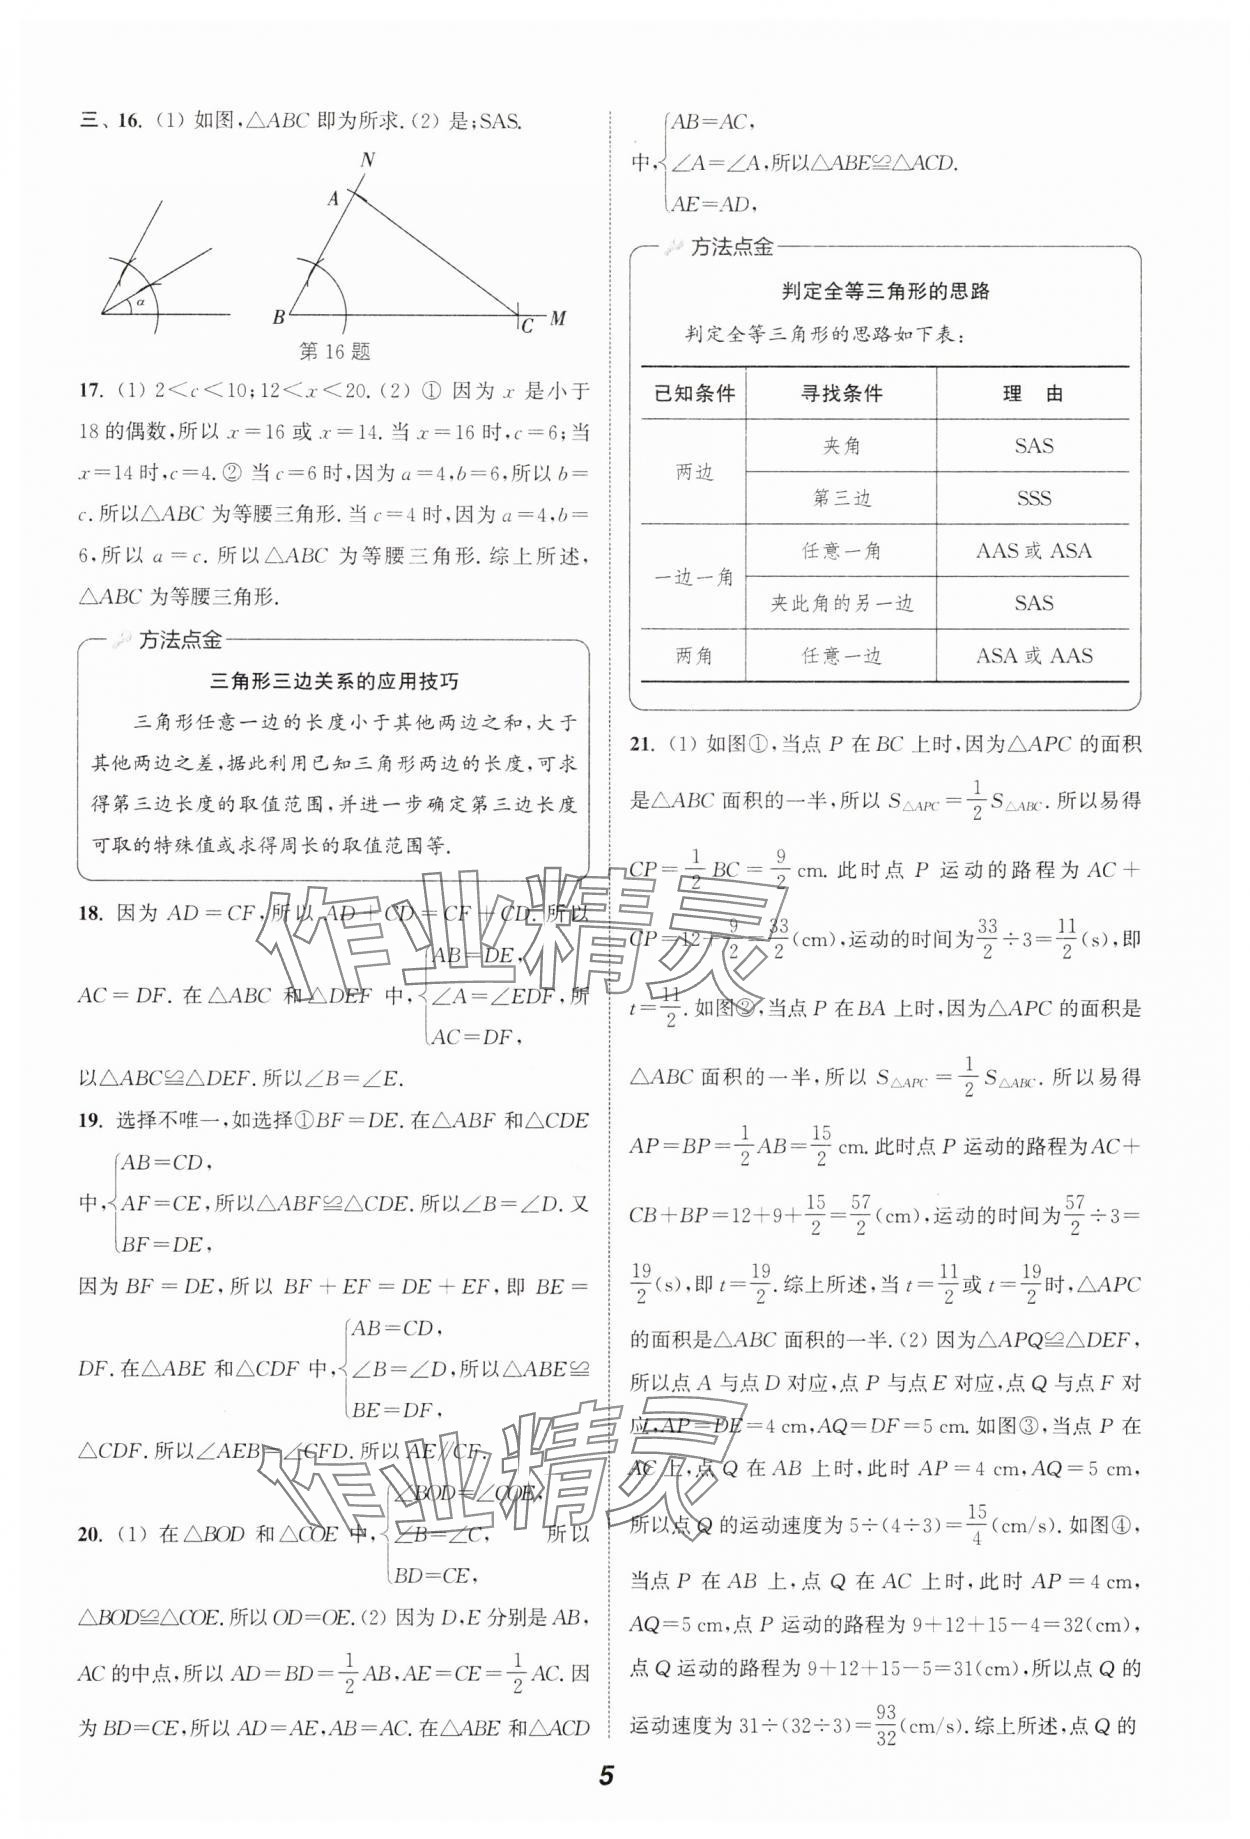 三、16. (1) 如图,△ABC 即为所求.(2) 是;SAS.
N
A
α
B
C
M
第16题
17. (1) 2<c<10;12<x<20.(2) ① 因为 x 是小于
18的偶数,所以 x=16 或 x=14. 当 x=16 时,c=6;当
x=14时,c=4.② 当c=6时,因为a=4,b=6,所以b=
c.所以△ABC 为等腰三角形.当c=4时,因为a=4,b=
6,所以 a=c. 所以△ABC 为等腰三角形.综上所述,
△ABC为等腰三角形.
方法点金
三角形三边关系的应用技巧
三角形任意一边的长度小于其他两边之和,大于
其他两边之差,据此利用已知三角形两边的长度,可求
得第三边长度的取值范围,并进一步确定第三边长度
可取的特殊值或求得周长的取值范围等.
18. 因为 AD=CF,所以 AD+CD=CF+CD. 所以
AB=DE,
AC=DF. 在△ABC 和△DEF 中,{∠A=∠EDF,所
AC=DF,
以△ABC≌△DEF.所以∠B=∠E.
19. 选择不唯一,如选择①BF=DE.在△ABF 和△CDE
AB=CD,
中,{AF=CE,所以△ABF≌△CDE.所以∠B=∠D. 又
BF=DE,
因为 BF=DE,所以 BF+EF=DE+EF,即 BE=
AB=CD,
DF.在△ABE 和△CDF 中,{∠B=∠D,所以△ABE≌
BE=DF,
△CDF.所以∠AEB=∠CFD.所以AE∥CF.
∠BOD=∠COE,
20. (1) 在△BOD 和△COE 中,{∠B=∠C, 所以
BD=CE,
△BOD≌△COE.所以OD=OE.(2) 因为D,E分别是AB,
AC的中点,所以 AD=BD=1/2AB,AE=CE=1/2AC. 因
为BD=CE,所以AD=AE,AB=AC.在△ABE 和△ACD
AB=AC,
中,{∠A=∠A,所以△ABE≌△ACD.
AE=AD,
方法点金
判定全等三角形的思路
判定全等三角形的思路如下表:
已知条件 寻找条件 理 由
两边 夹角 SAS
第三边 SSS
一边一角 任意一角 AAS或ASA
夹此角的另一边 SAS
两角 任意一边 ASA或AAS
21. (1) 如图①,当点 P 在 BC 上时,因为△APC 的面积
是△ABC 面积的一半,所以 S△APC=1/2S△ABC. 所以易得
CP=1/2BC=9/2cm. 此时点 P 运动的路程为 AC+
CP=12+9/2=33/2(cm),运动的时间为33/2÷3=11/2(s),即
t=11/2.如图②,当点P在BA上时,因为△APC的面积是
△ABC 面积的一半,所以 S△APC=1/2S△ABC. 所以易得
AP=BP=1/2AB=15/2cm.此时点P运动的路程为AC+
CB+BP=12+9+15/2=57/2(cm),运动的时间为57/2÷3=
19/2(s),即t=19/2.综上所述,当 t=11/2或t=19/2时,△APC
的面积是△ABC 面积的一半.(2) 因为△APQ≌△DEF,
所以点A与点D对应,点P与点E对应,点Q与点F对
应,AP=DE=4 cm,AQ=DF=5 cm.如图③,当点 P 在
AC上,点Q在AB上时,此时 AP=4 cm,AQ=5 cm,
所以点Q的运动速度为5÷(4÷3)=15/4(cm/s).如图④,
当点 P 在 AB 上,点 Q 在 AC 上时,此时 AP=4 cm,
AQ=5 cm,点P运动的路程为9+12+15-4=32(cm),
点Q运动的路程为9+12+15-5=31(cm),所以点Q的
运动速度为31÷(32÷3)=93/32(cm/s).综上所述,点Q的
作业精灵
作业精灵
5